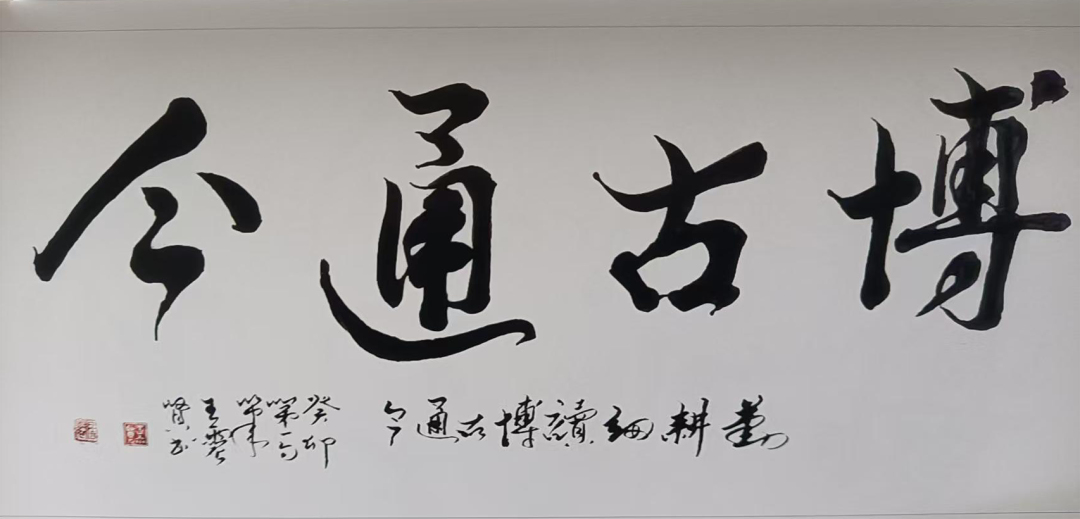 博古通今
勤耕細讀博古通今
癸卯
王